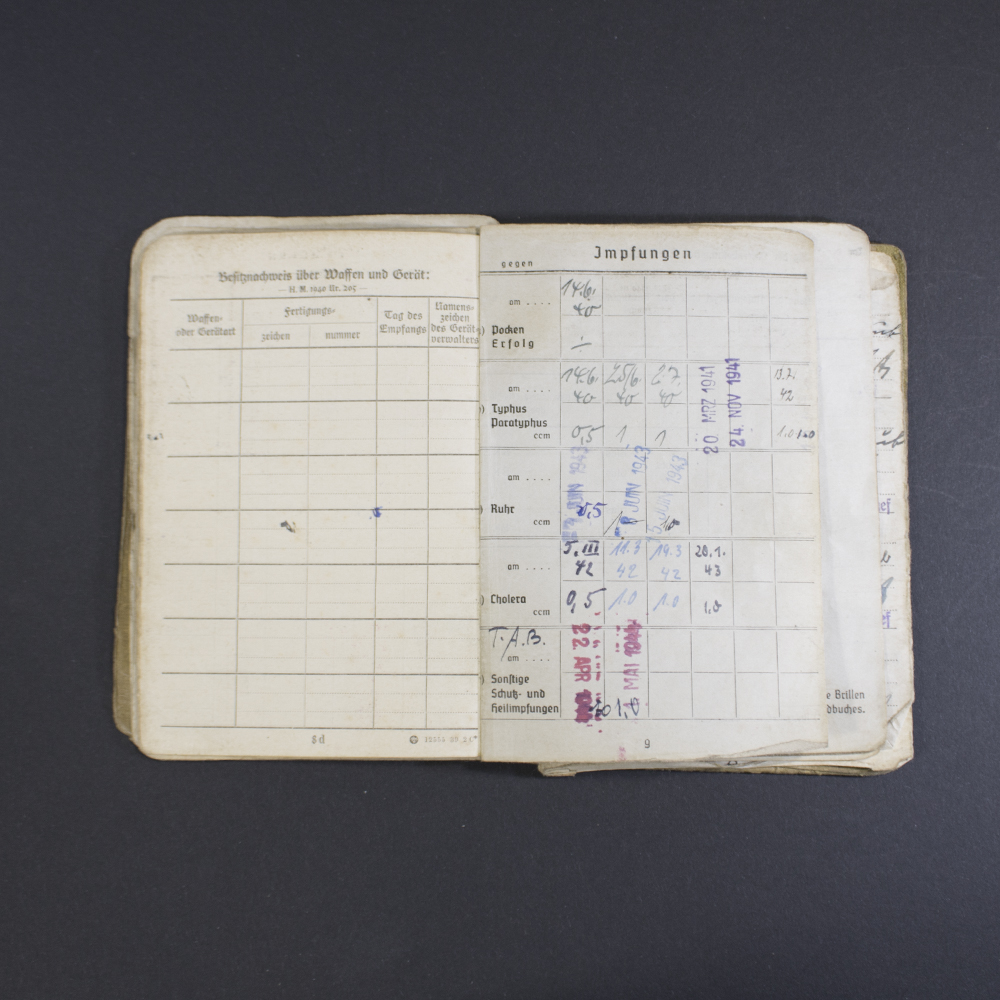 Besitznachweis über Waffen und Gerät:
— H. M. 1940 Nr. 265 —
Waffen- oder Geräteart
Fertigungs-
zeichen
nummer
Tag des Empfangs
Namens-zeichen des Gerät-verwalters
8d
Impfungen
gegen
am .... 14.6. 40
Pocken
Erfolg
am .... 14.6. 40 25/6. 40 2.7. 40 20 MRZ 1941 24. NOV 1941 13.7. 42
Typhus
Paratyphus
ccm 0,5 1, 1 1.0
JUIN 1943 JUIN 1943 JUIN 1943
am ....
Ruhr
ccm
am .... 5. III 42 11.3 42 19.3 42 20.1. 43
Cholera
ccm 0,5 1.0 1.0 1,0
T.A.B.
am .... 22. APR MAI
Sonstige
Schutz- und
Heilimpfungen
9
e Brillen
dbuches.